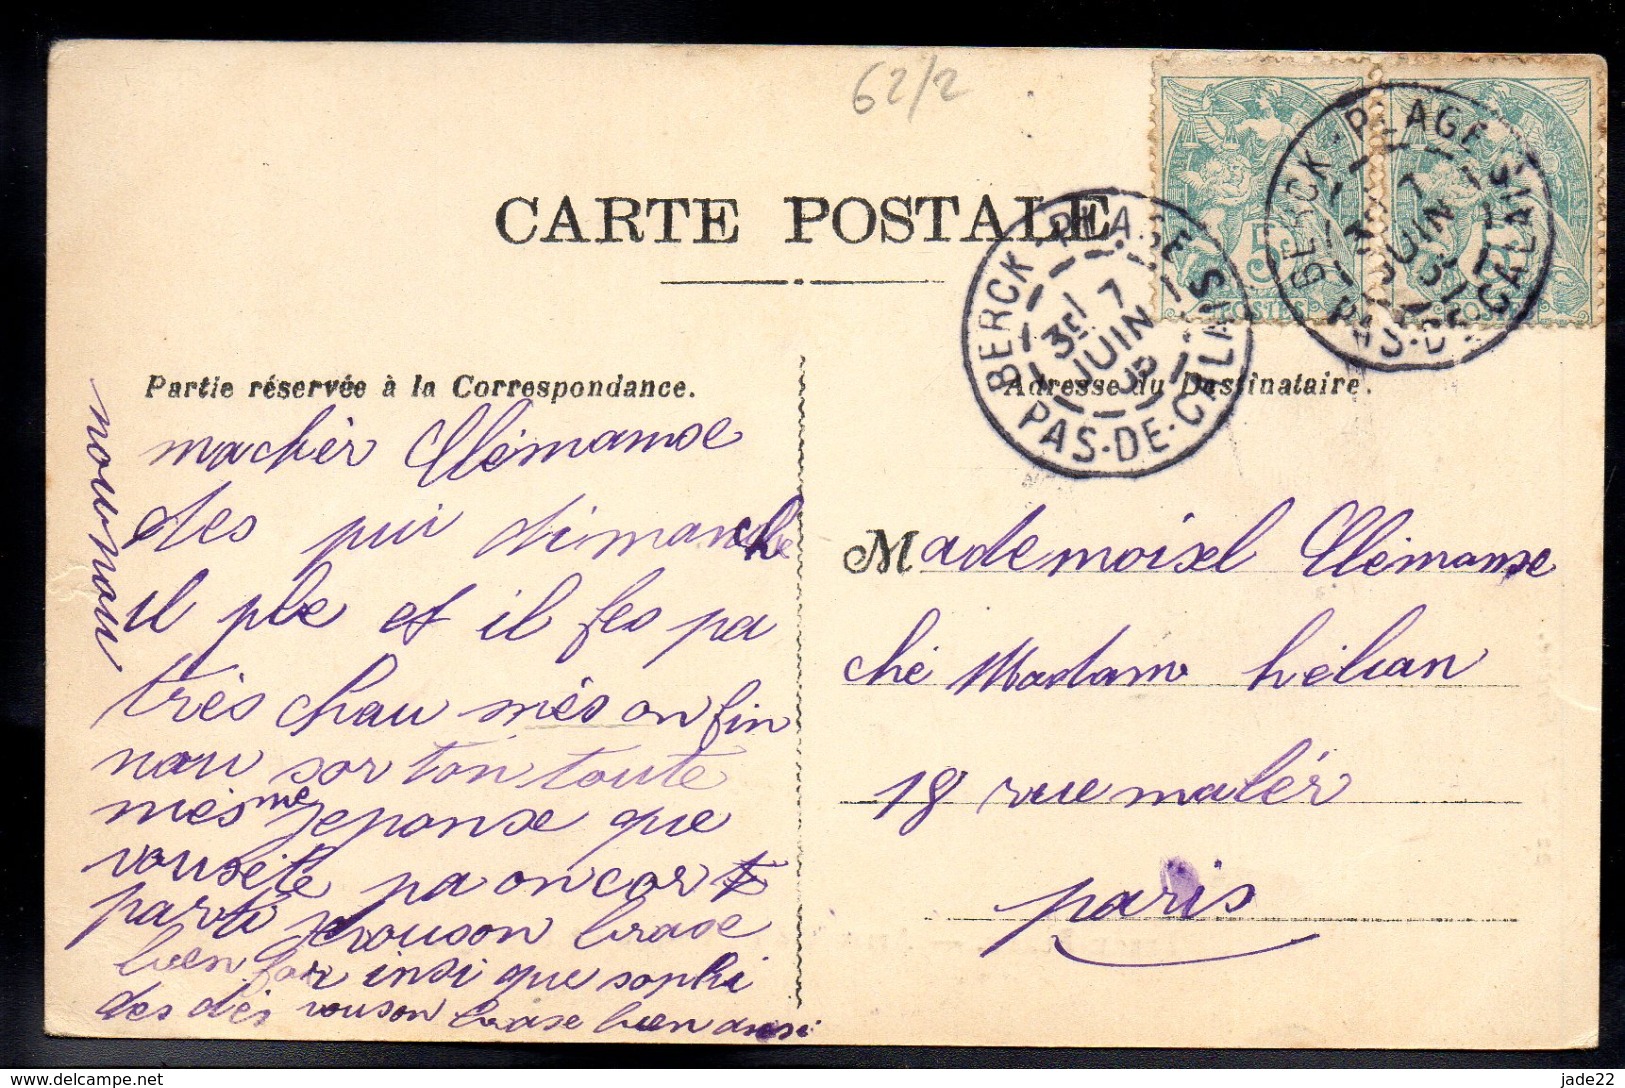 62/2
CARTE POSTALE
BERCK-PLAGE
7
JUIN
PAS-DE-CALAIS
BERCK-PLAGE
3E 7
JUIN
07
PAS-DE-CALAIS
5c
POSTES
Partie réservée à la Correspondance.
Adresse du Destinataire.
machèr Clémamse
des pui dimanche
il ple et il fes pa
très chau més onfin
nou sor ton toute
més me jeponse que
vousète pa oncor
parti jevouson brase
bien for insi que sophi
des dés vouson brase bien ausi
nournou
Mademoisel Clémamse
ché Madam hélian
18 rue malér
paris
jade22